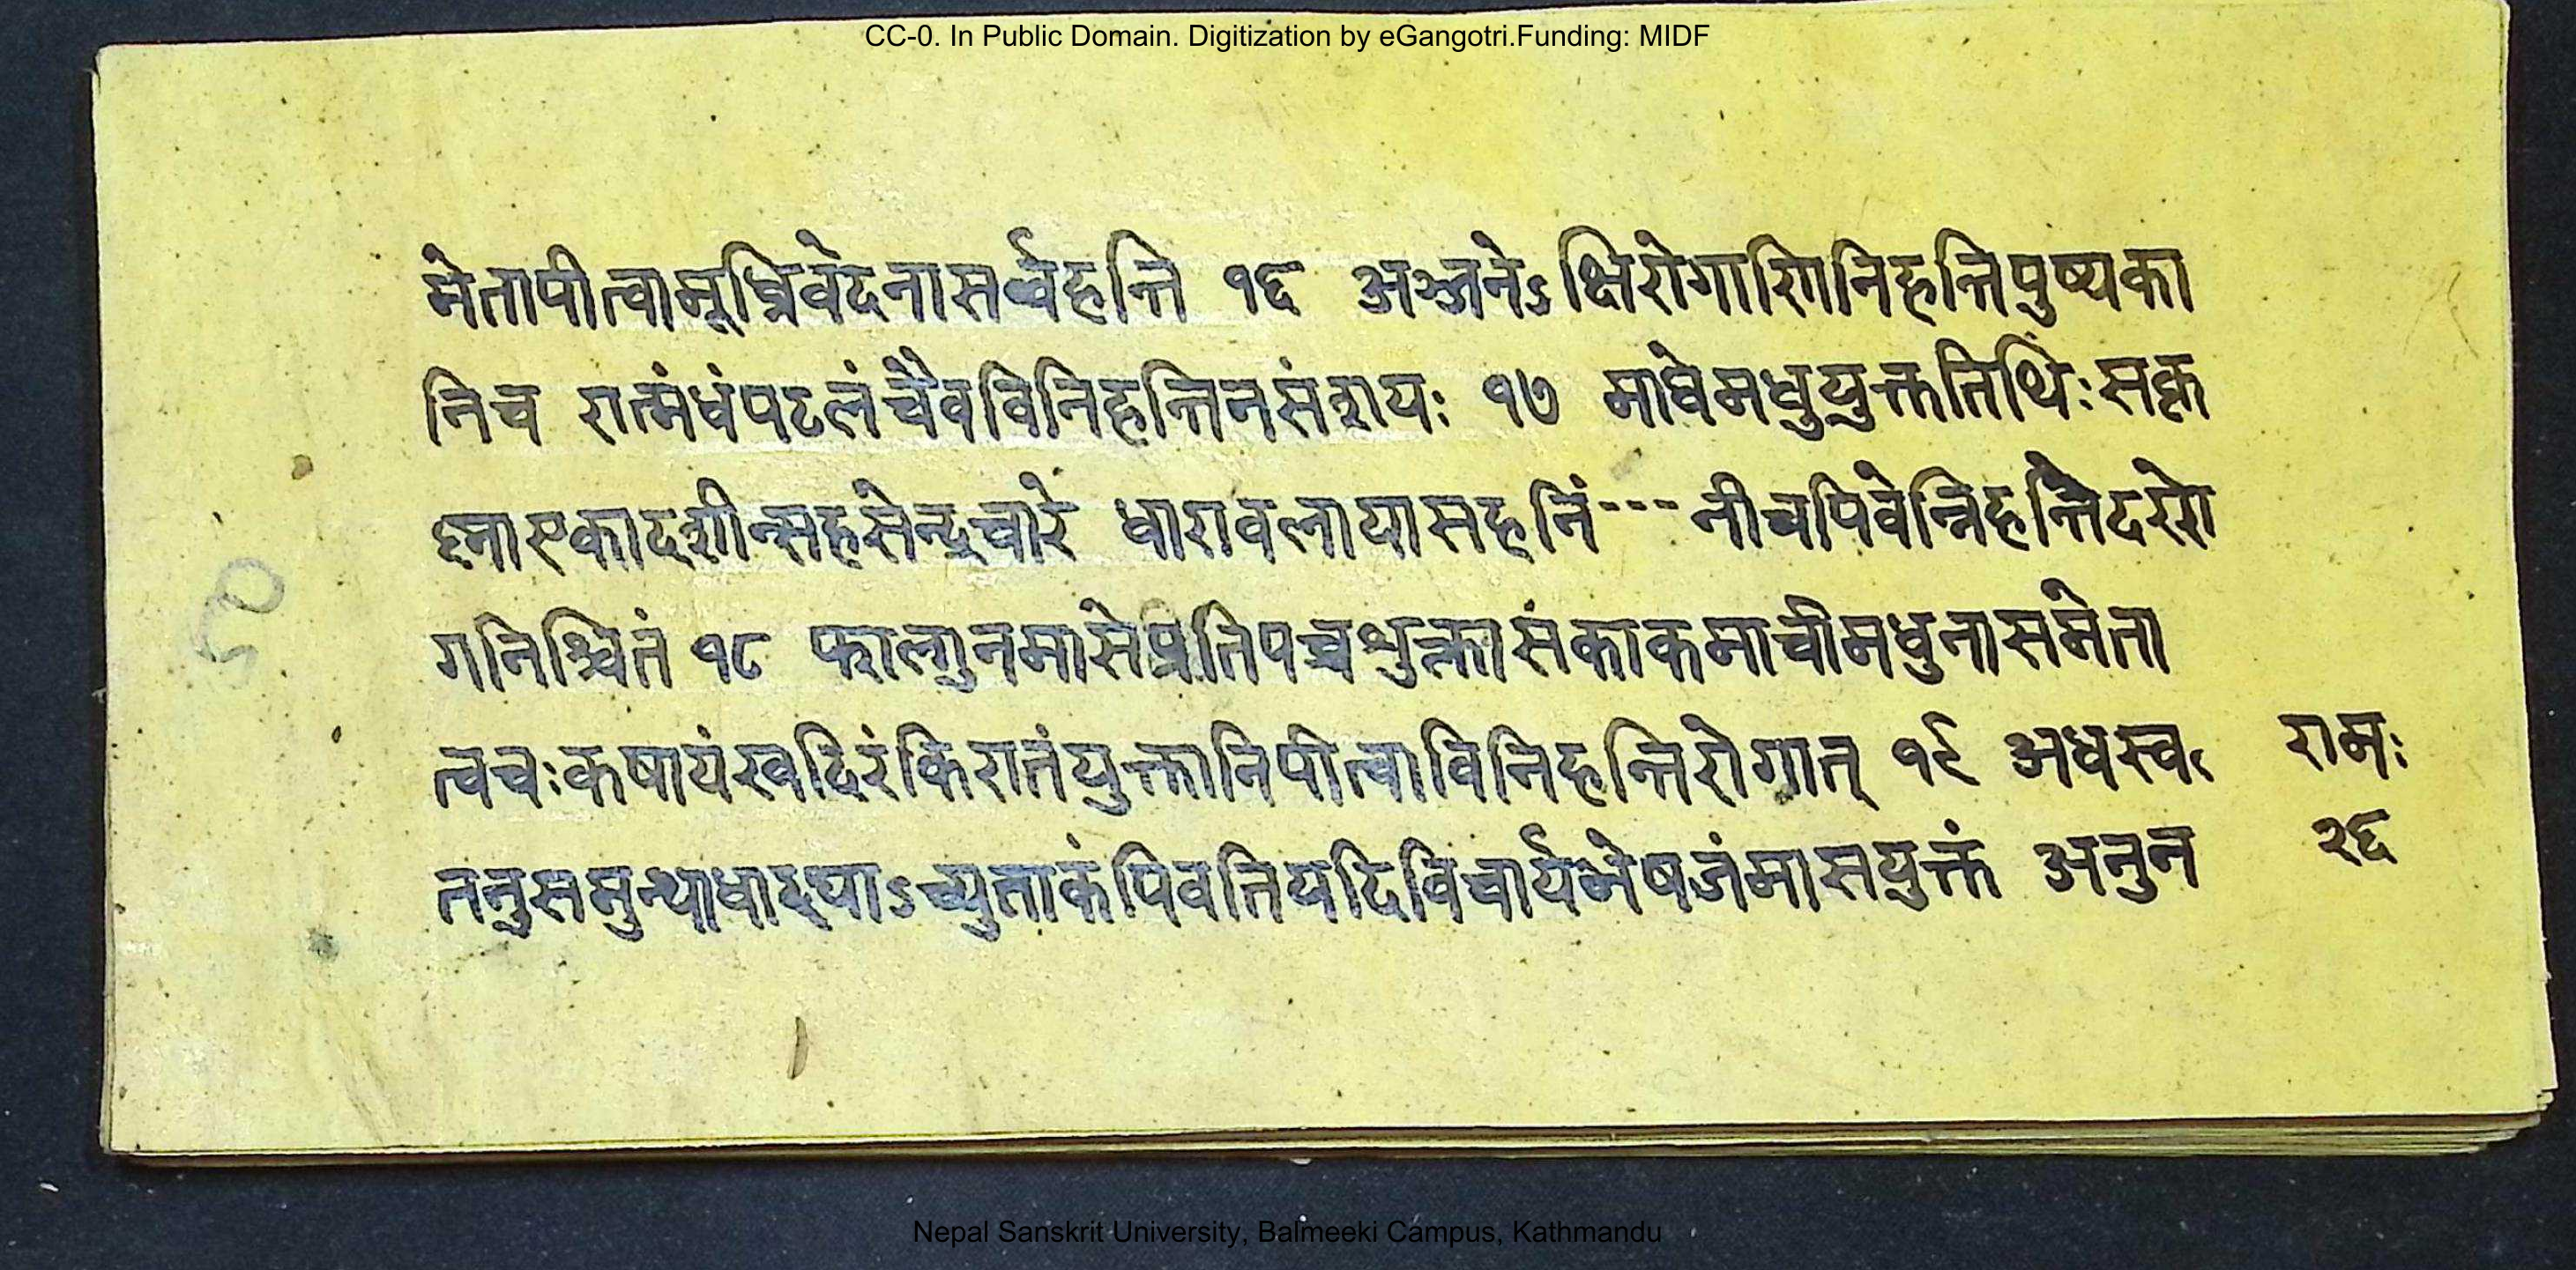 CC-0. In Public Domain. Digitization by eGangotri.Funding: MIDF
मेतापीत्वामूर्ध्निवेदनासर्वहन्ति १६ अञ्जनेऽक्षिरोगाणिनिहन्तिपुष्यका
निच रात्र्मंधंपटलंचैवविनिहन्तिनसंशयः १७ माघेमधुयुक्ततिथिः
न्सहसेन्दुवारे धारावलायासहनिं---नीचपिवेन्निहन्तिदररो
गनिश्चितं १८ फाल्गुनमासेप्रतिपच्चशुक्लासंकाकमाचीमधुनासमेता
त्वचःकषायंखदिरंकिरातंयुक्तानिपीत्वाविनिहन्तिरोगात् १९ अधस्व
रामः
पिवतियदिविचार्यभेषजंमासयुक्तं अनुन
२६
Nepal Sanskrit University, Balmeeki Campus, Kathmandu